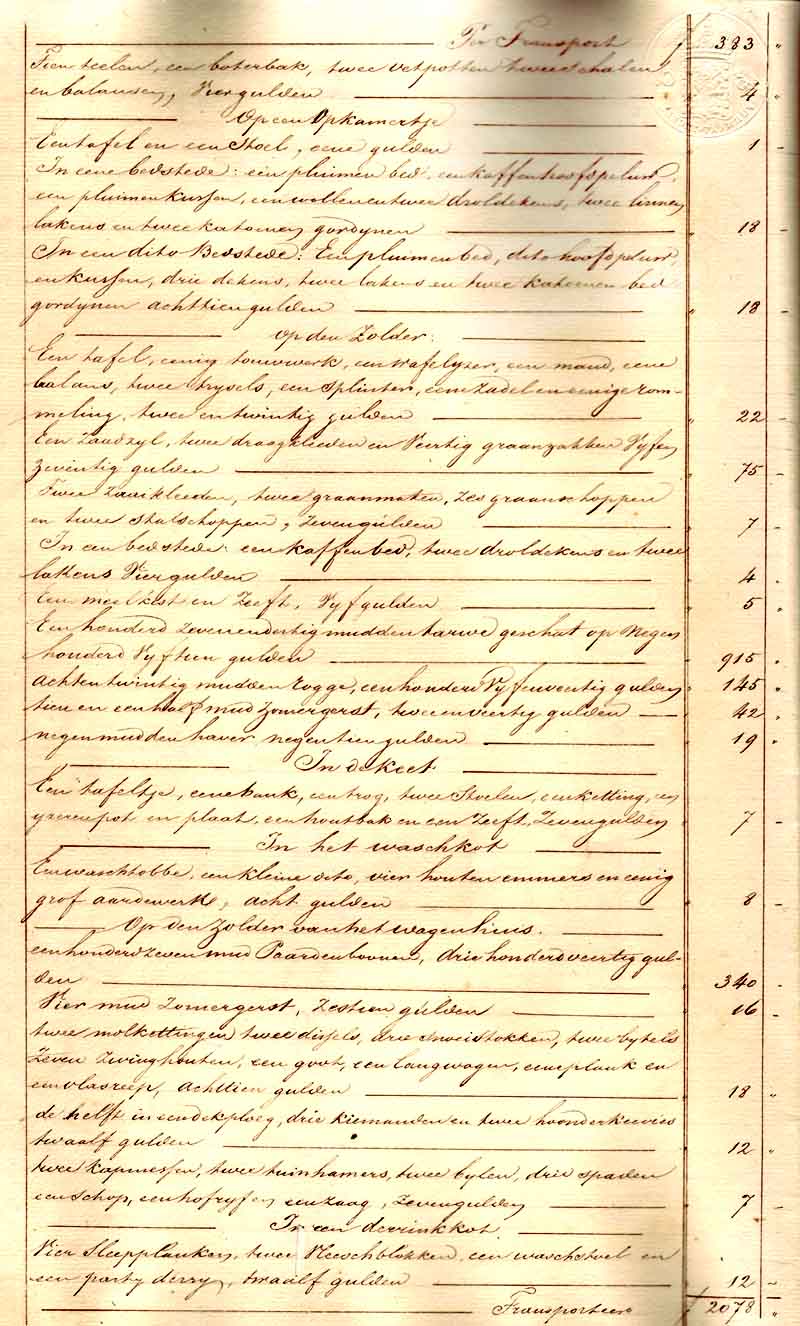 Per Transport f 383 "
Tien teelen, een boterbak, twee vetpotten twee schalen
en balansen, Vier gulden " 4 "
Op een Opkamertje
Een tafel en een Stoel, eene gulden " 1 -
In eene bedstede: een pluimen bed, een kaffen hoofdpeluw,
een pluimen kussen, een wollen en twee droldekens, twee linnen
lakens en twee katoenen gordynen " 18 -
In een dito Bedstede: Een pluimen bed, dito hoofdpeluw,
en kussen, drie dekens, twee lakens en twee katoenen bed
gordynen achttien gulden " 18 -
Op den Zolder:
Een tafel, eenig touwwerk, een wafelyzer, een mand, eene
balans, twee tryzels, een splinter, eene zadel en eenige rom-
meling, twee en twintig gulden " 22 -
Een Zaadzyl, twee draagkleeden en Veertig graanzakken Vyf en
zeventig gulden " 75 -
Twee Zaaikleeden, twee graanmaten, Zes graanschoppen
en twee stalschoppen, Zeven gulden " 7 -
In een bedstede: een kaffen bed, twee droldekens en twee
lakens Vier gulden " 4 "
Een meelkist en Zeeft, Vyf gulden " 5 "
Een honderd zeven en dertig mudden tarwe geschat op Negen
honderd Vyftien gulden " 915 "
Achtentwintig mudden Rogge, een honderd Vyf en veertig gulden " 145 "
tien en een half mud Zomergerst, twee en veertig gulden " 42 "
negen mudden haver negentien gulden " 19 "
In de keet
Een tafeltje, eene bank, een trog, twee Stoelen, een ketting, een
yzeren pot en plaat, een houtbak en een Zeeft, Zeven gulden " 7 -
In het waschkot
Een waschtobbe, een kleine dito, vier houten emmers en eenig
grof aardewerk, acht gulden " 8 -
Op den Zolder van het wagenhuis.
een honderd zeven mud Paardenboonen, drie honderd veertig gul-
den " 340 -
Vier mud Zomergerst, Zestien gulden " 16 -
twee molkettingen, twee dissels, drie snoeistokken, twee bytels
Zeven Zwinghouten, een goot, een langwagen, eene plank en
een vlasreep, achttien gulden " 18 "
de helft in een dekploeg, drie kiemanden en twee hoenderkeevies
twaalf gulden " 12 "
twee kapmessen, twee tuinhamers, twee bylen, drie spaden
een schop, een hofryf en een zaag, Zeven gulden " 7 -
In een derrinkkot
Vier Sleepplanken, twee Vleeschblokken, een waschstoel en
een party derry, twaalf gulden " 12 -
Transporteere f 2078 "